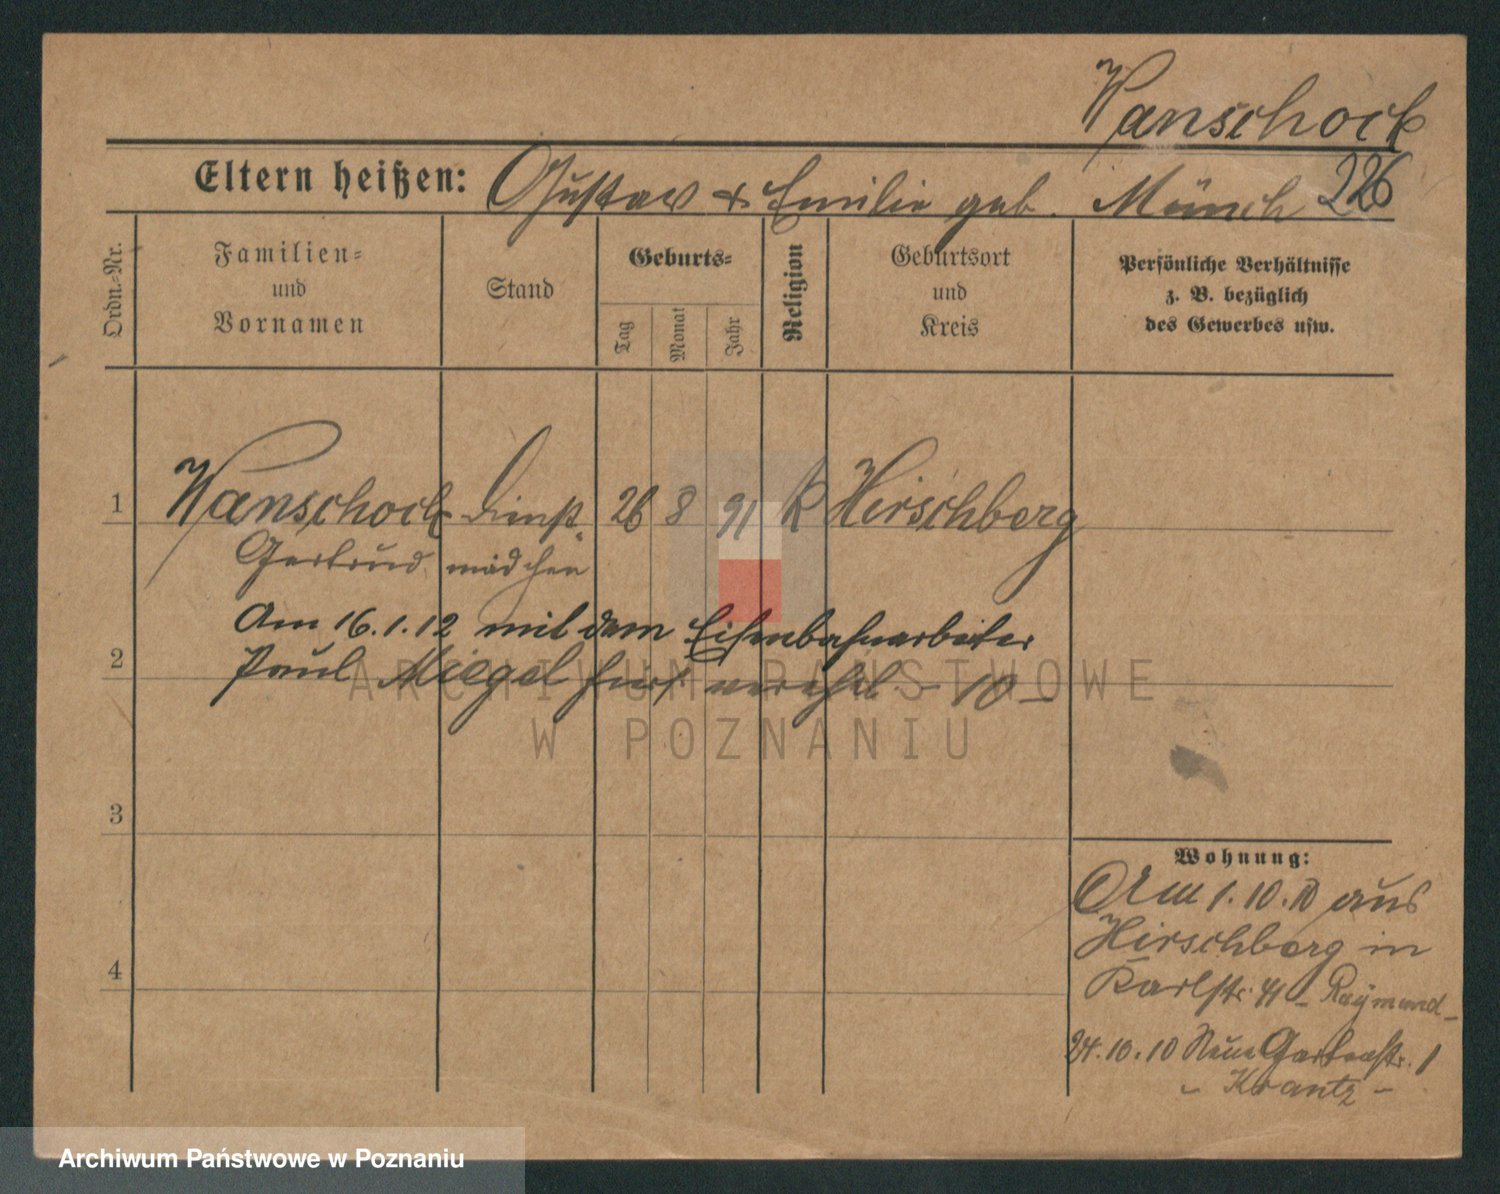 Wanschock
Eltern heißen: Gustav & Emilie geb. Münch 226
Ordn.-Nr.
Familien-
und
Vornamen
Stand
Geburts-
Tag
Monat
Jahr
Religion
Geburtsort
und
Kreis
Persönliche Verhältnisse
z. B. bezüglich
des Gewerbes usw.
1 Wanschock Dienst- 26 8 91 K Hirschberg
Gertrud mädchen
Am 16.1.12 mit dem Eisenbahnarbeiter
2 Paul Miegel hier verehel. - 10 -
3
4
Wohnung:
Am 1.10.10 aus
Hirschberg in
Karlstr. 41 - Raymund -
24.10.10 Neue Gartenstr. 1
- Krantz -
ARCHIWUM PAŃSTWOWE
W POZNANIU
Archiwum Państwowe w Poznaniu